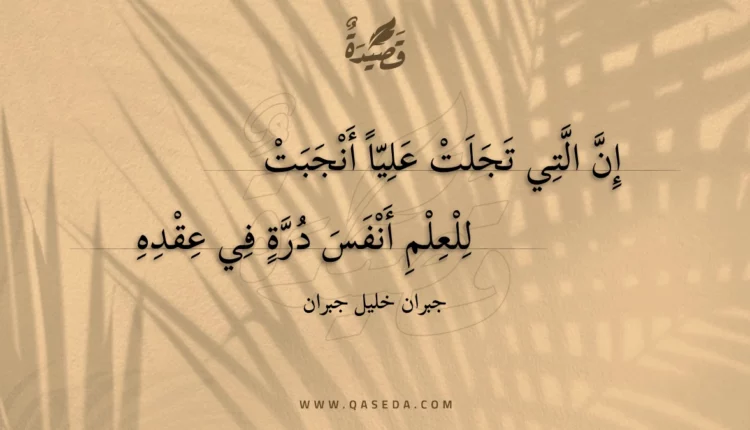 قَصِيْدَةٌ
إِنَّ الَّتِي تَجَلَتْ عَلِيّاً أَنْجَبَتْ
لِلْعِلْمِ أَنْفَسَ دُرَّةٍ فِي عِقْدِهِ
جبران خليل جبران
WWW.QASEDA.COM